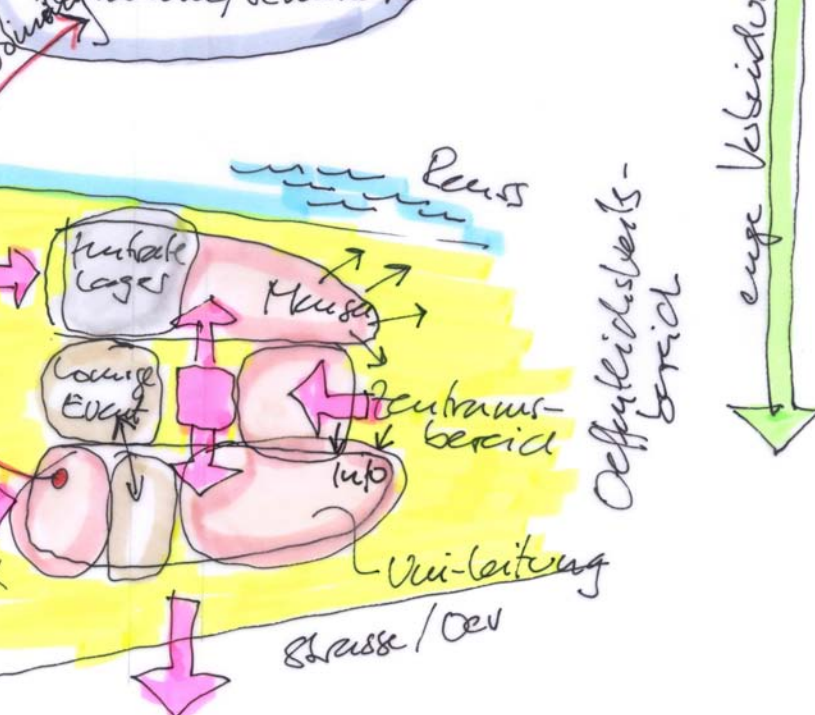 Reuss
Mensa
Lager
Lounge
Event
Zentrums-
bereich
Info
Uni-Leitung
Strasse / Oev
Oeffentlichkeits-
bereich
enge